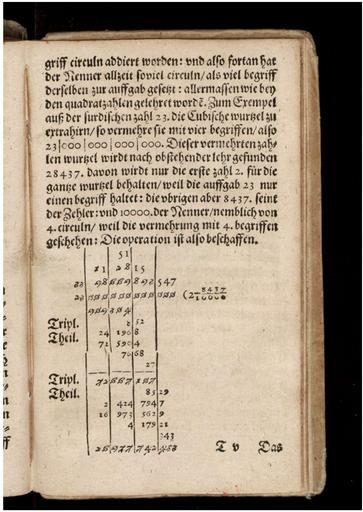 griff circuln addiert worden: vnd also fortan hat
der Nenner allzeit soviel circuln/als viel begriff
derselben zur auffgab gesetzt: allermassen wie bey
den quadratzahlen gelehret word̄e. Zum Exempel
auß der surdischen zahl 23. die Cubische wurtzel zu
extrahirn/so vermehre sie mit vier begriffen/also
23|000|000|000|000. Dieser vermehrten zah-
len wurtzel wirdt nach obstehender lehr gefunden
28437. davon wirdt nur die erste zahl 2. für die
gantze wurtzel behalten/weil die auffgab 23 nur
einen begriff haltet: die vbrigen aber 8437. seint
der Zehler: vnd 10000. der Nenner/nemblich von
4. circuln/ weil die vermehrung mit 4. begriffen
geschehen: Die operation ist also beschaffen.
51
21 28 15
547
(2 8437/10000
Tripl. 2 52
Theil. 24 196 8
71 590 4
70 68
27
Tripl.
Theil. 85 29
2 424 794 7
16 973 562 9
4 179 21
343
T v Das